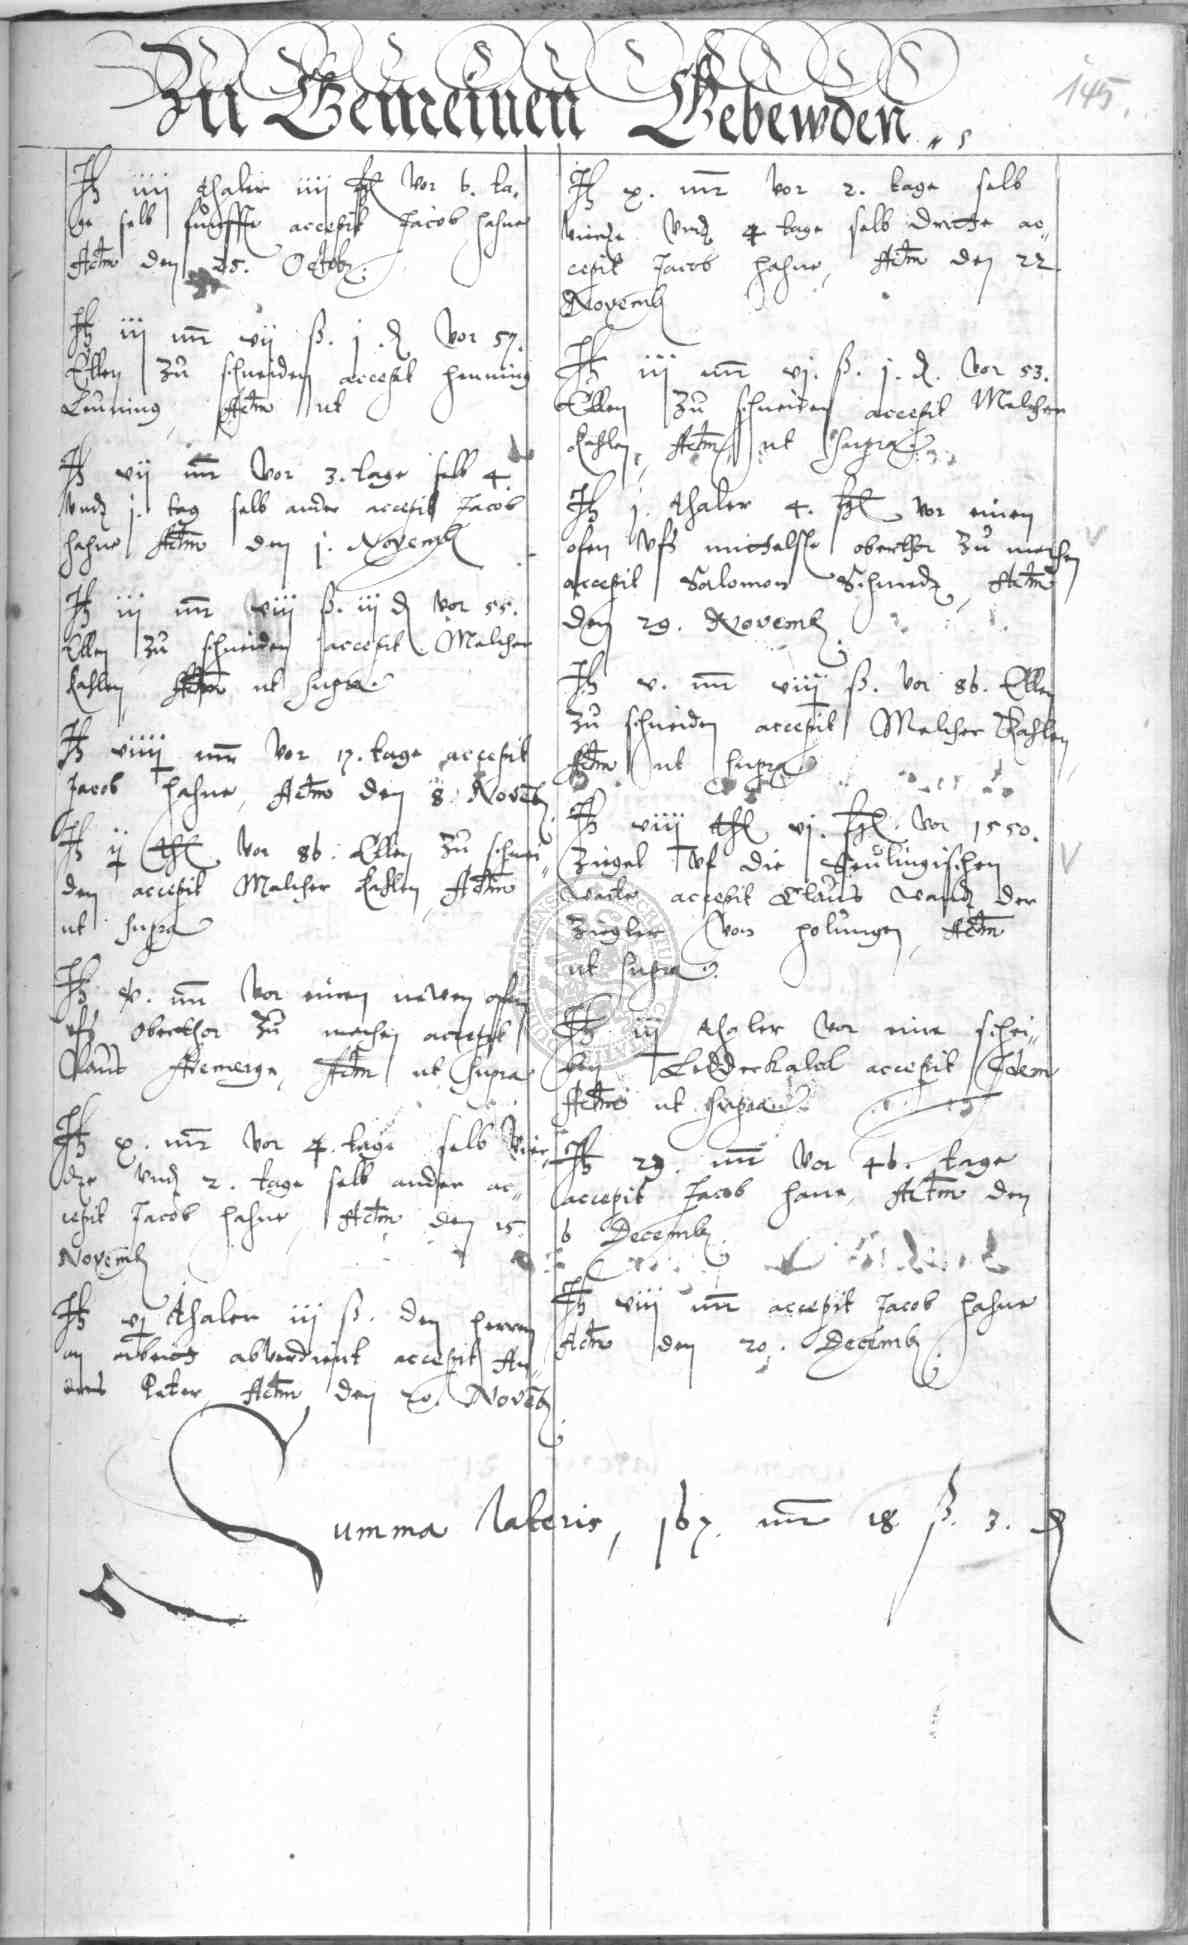 145.
Zu Gemeinen Gebewden
It iiij thaler iiij ßgl vor 6. ta-
ge selb funffte accepit Jacob hahne
Actm den 25. Octobr.
It iij mr vij ß. j. d vor 57.
Ellen zu schneiden accepit henning
Leuning, Actm ut
It vij mr vor 3. tage selb 4.
vnd j. tag selb ander accepit Jacob
hahne Actm den j. Novemb
It iij mr viij ß. iij d vor 55.
Ellen zu schneiden accepit Malcher
kahlen, Actm ut supra
It viiij mr vor 17. tage accepit
Jacob hahne, Actm den 8. Novemb
It ij thl vor 86. Ellen zu schnei-
den accepit Malcher kahlen, Actm
ut supra
It v. mr vor einen newen ofen
vfs Oberthor zu machen accepit
Claus, Actm ut supra
It x. mr vor 4. tage selb vier-
dte vnd 2. tage selb ander ac-
cepit Jacob hahne, Actm den 15.
Novemb
It vj thaler iij ß. den herren
an arbeit abverdient accepit An-
dres Peter, Actm den 20. Novemb
It x. mr vor 2. tage selb
vierde vnd 4 tage selb dritte ac-
cepit Jacob hahne, Actm den 22
Novemb
It iij mr vj. ß. j. d. vor 53.
Ellen zu schneiden accepit Malcher
kahlen, Actm ut supra
It j. thaler 4. ßgl vor einen
ofen vfs oberthor zu machen
accepit Salomon Schmedt, Actm
den 29. Novemb
It v. mr viiij ß. vor 86. Ellen
zu schneiden accepit Malcher Kahlen
Actm ut supra
It viiij thl vj. ßgl. vor 1550.
Ziegel vf die Feulingischen
warte accepit Claus wandt der
Ziegler von holungen, Actm
ut supra.
It iij thaler vor eine schei-
ben Ledderkalck accepit Idem
Actm ut supra
It 29. mr vor 46. tage
accepit Jacob hane, Actm den
6 Decemb
It viij mr accepit Jacob hahne
Actm den 20. Decemb
Summa lateris, 167. mr 18. ß. 3. d